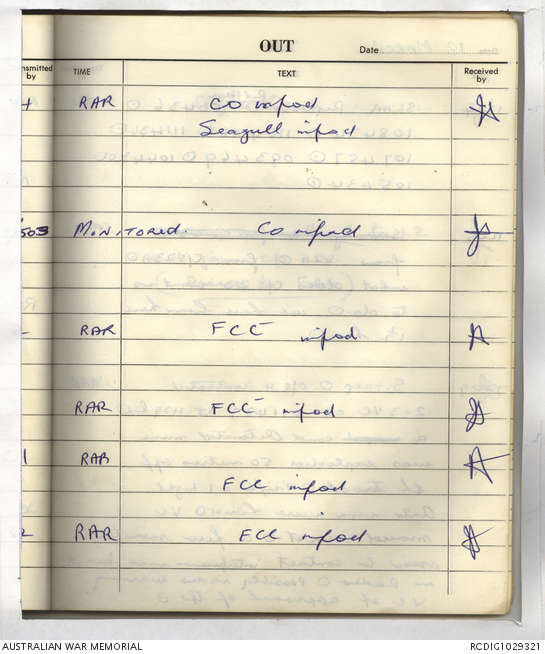 OUT
Date
nsmitted by TIME TEXT Received by
4 RAR CO infod
Seagull infod
503 MONITORED. CO infod
RAR FCC infod
RAR FCC infod
1 RAR
FCC infod
2 RAR FCC infod
AUSTRALIAN WAR MEMORIAL RCDIG1029321